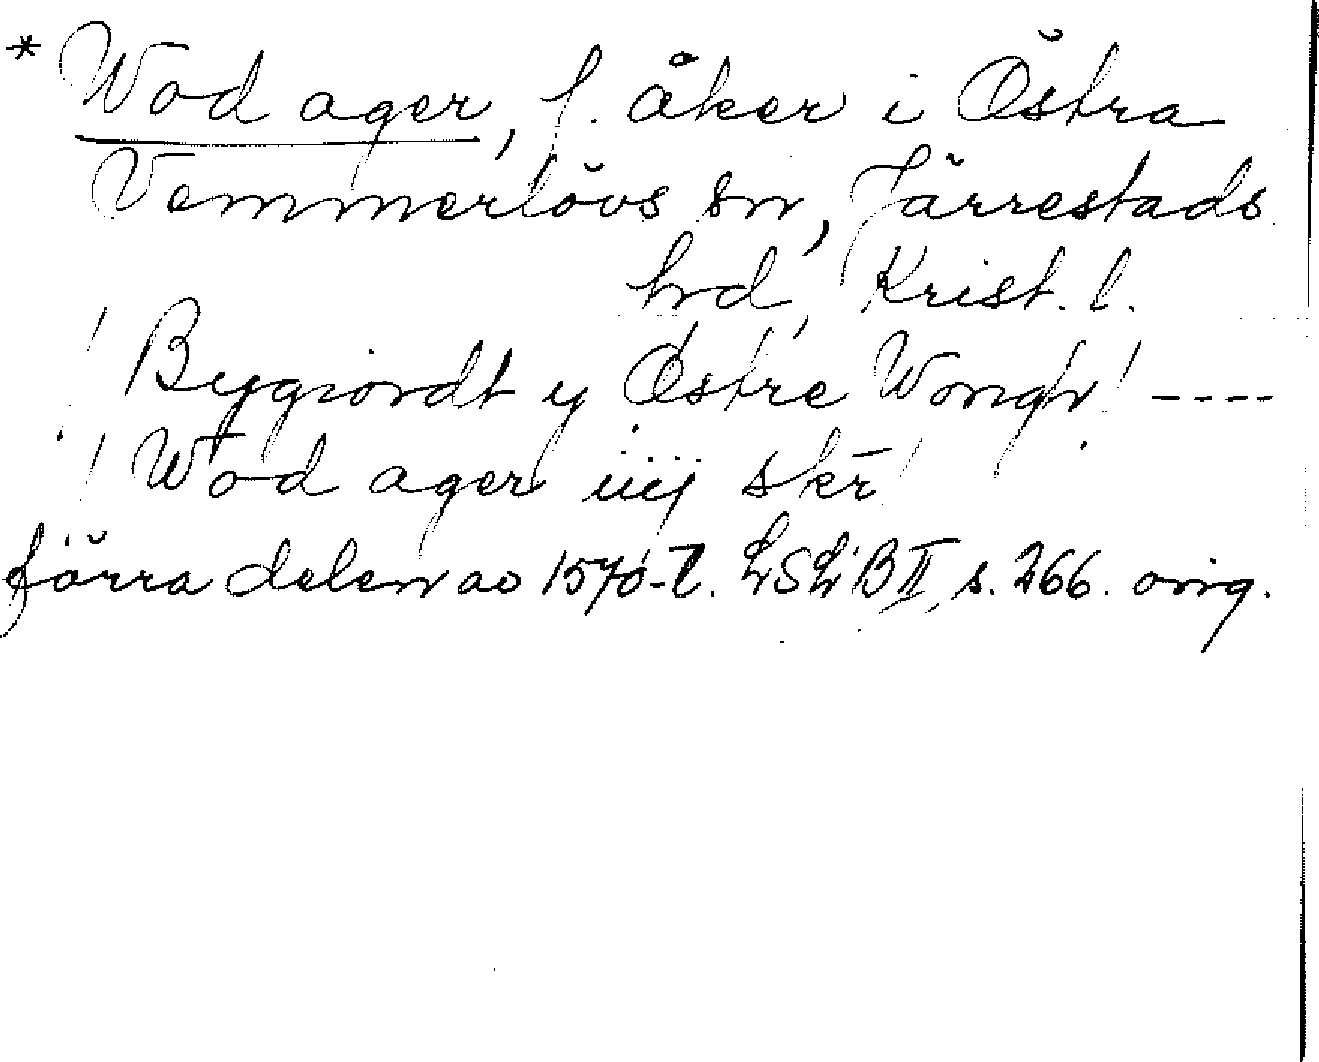 * Wod ager, f. åker i Östra
Vemmerlövs sn, Järrestads
hrd, Krist. l.
! Bygiordt y Østre Wongh! ----
! Wod ager iiij skr̄ !
förra delen av 1570-t. LSLB II, s. 266. orig.